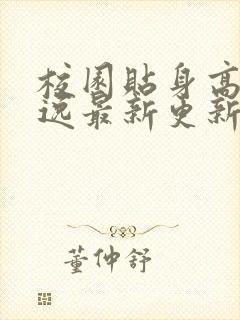 校园贴身高
逸最新更新
董仲舒